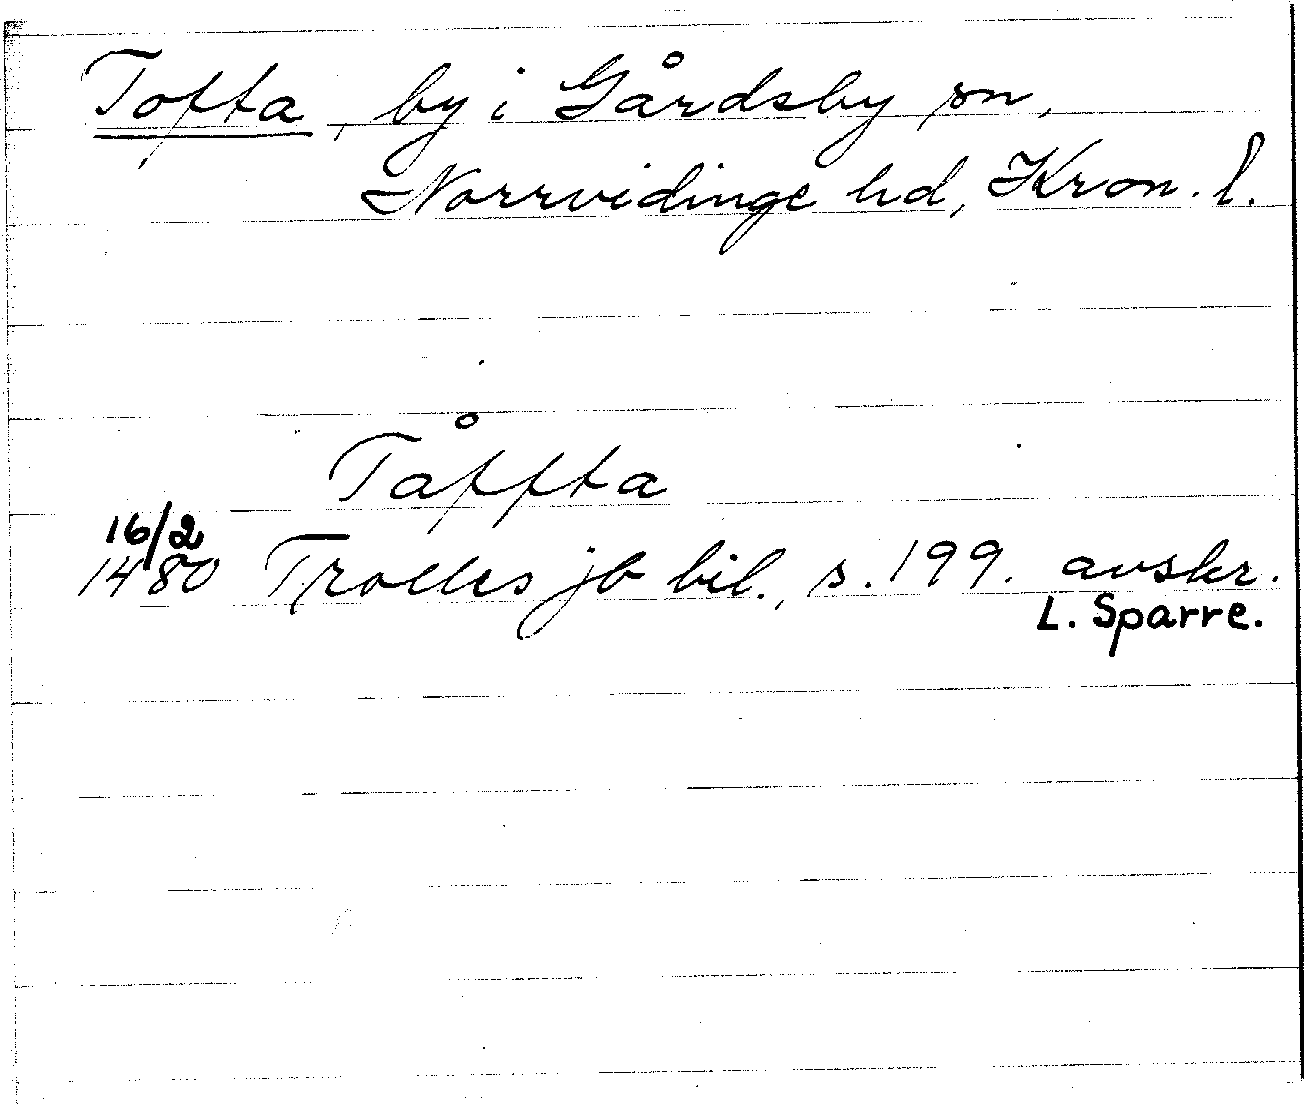 Tofta, by i Gårdsby sn,
Norrvidinge hd, Kron. l.
Tåffta
16/2
1480 Trolles jb bil., s. 199. avskr.
L. Sparre.